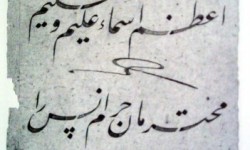 اعظم اسماء علیم و حکیم
محترمان حرم انس را